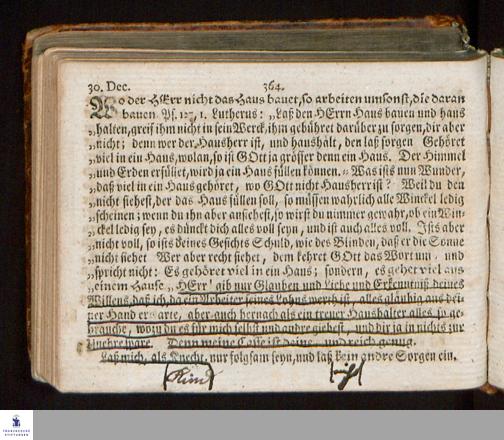 30. Dec. 364.
Wo der HErr nicht das Haus bauet, so arbeiten umsonst, die daran
bauen Ps. 127, 1. Lutherus: „Laß den HErrn Haus bauen und haus
„halten, greif ihm nicht in sein Werck, ihm gebühret darüber zu sorgen, dir aber
„nicht; denn wer der Hausherr ist, und haushält, den laß sorgen Gehöret
„viel in ein Haus, wolan, so ist GOtt ja grösser denn ein Haus. Der Himmel
„und Erden erfüllet, wird ja ein Haus füllen können. Was ists nun Wunder,
„daß viel in ein Haus gehöret, wo GOtt nicht Hausherr ist? Weil du den
„nicht siehest, der das Haus füllen soll, so müssen warlich alle Winckel ledig
„scheinen; wenn du ihn aber ansehest, so wirst du nimmer gewahr, ob ein Win-
„ckel ledig sey, es dünckt dich alles voll seyn, und ist auch alles voll. Ists aber
„nicht voll, so ists deines Gesichts Schuld, wie des Blinden, daß er die Sonne
„nicht siehet Wer aber recht siehet, dem kehret GOtt das Wort um, und
„spricht nicht: Es gehöret viel in ein Haus; sondern, es gehet viel aus
„einem Hause „ HErr! gib nur Glauben und Liebe und Erkenntniß deines
Willens, daß ich, da ein Arbeiter seines Lohns werth ist, alles gläubig aus dei-
ner Hand erwarte, aber auch hernach als ein treuer Haushalter alles so ge-
brauche, wozu du es für mich selbst und andre giebest, und dir ja in nichts zur
Unehre ware. Denn meine Casse ist deine, und reich genug.
Laß mich, als Knecht, nur folgsam seyn, und laß kein andre Sorgen ein.
Kind